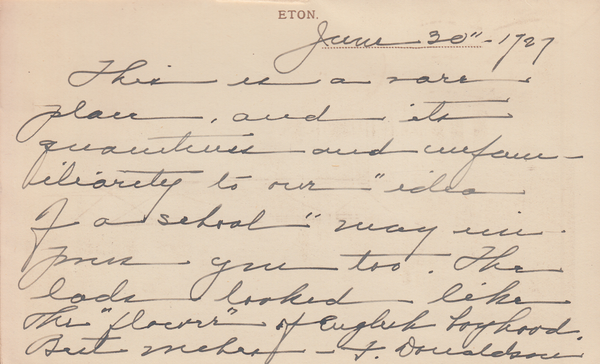 ETON.
June 30" - 1927
This is a rare
place, and its
quaintness and unfam-
iliarity to our "idea
of a school" may im-
press you too. The
lads looked like
the "flower" of English boyhood.
But - F. Donaldson